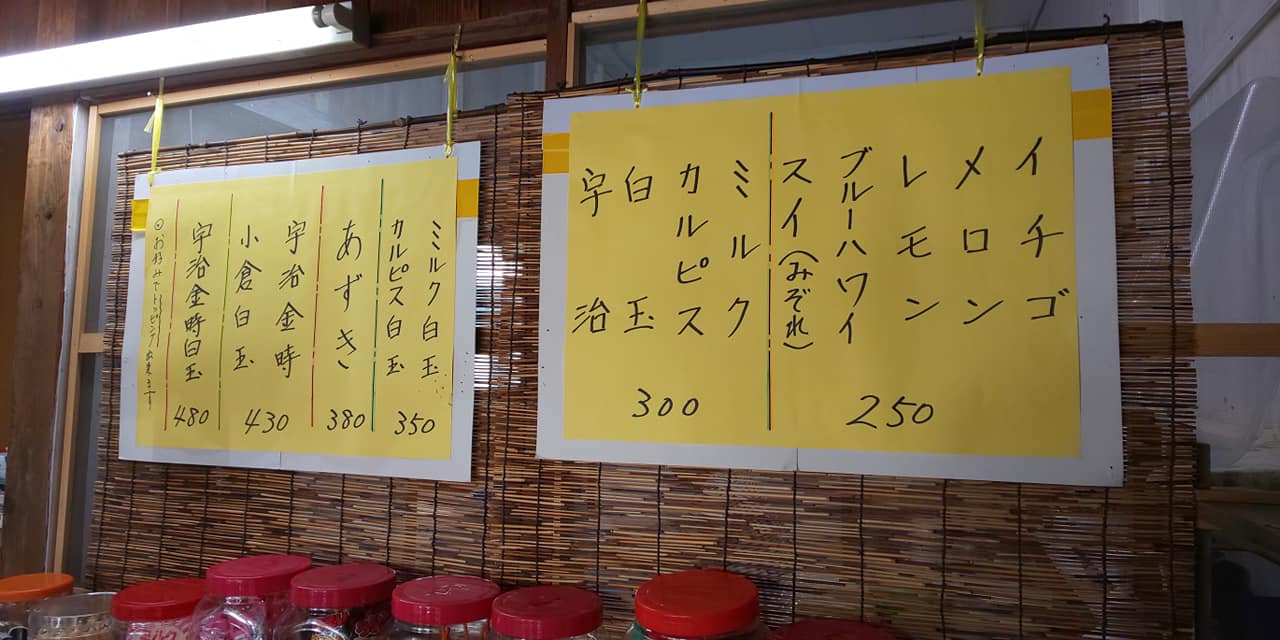 イチゴ
メロン
レモン
ブルーハワイ
スイ(みぞれ)
250
ミルク
カルピス
白玉
宇治
300
ミルク白玉
カルピス白玉
350
あずき
380
宇治金時
小倉白玉
430
宇治金時白玉
480
◎お好みでトッピング出来ます